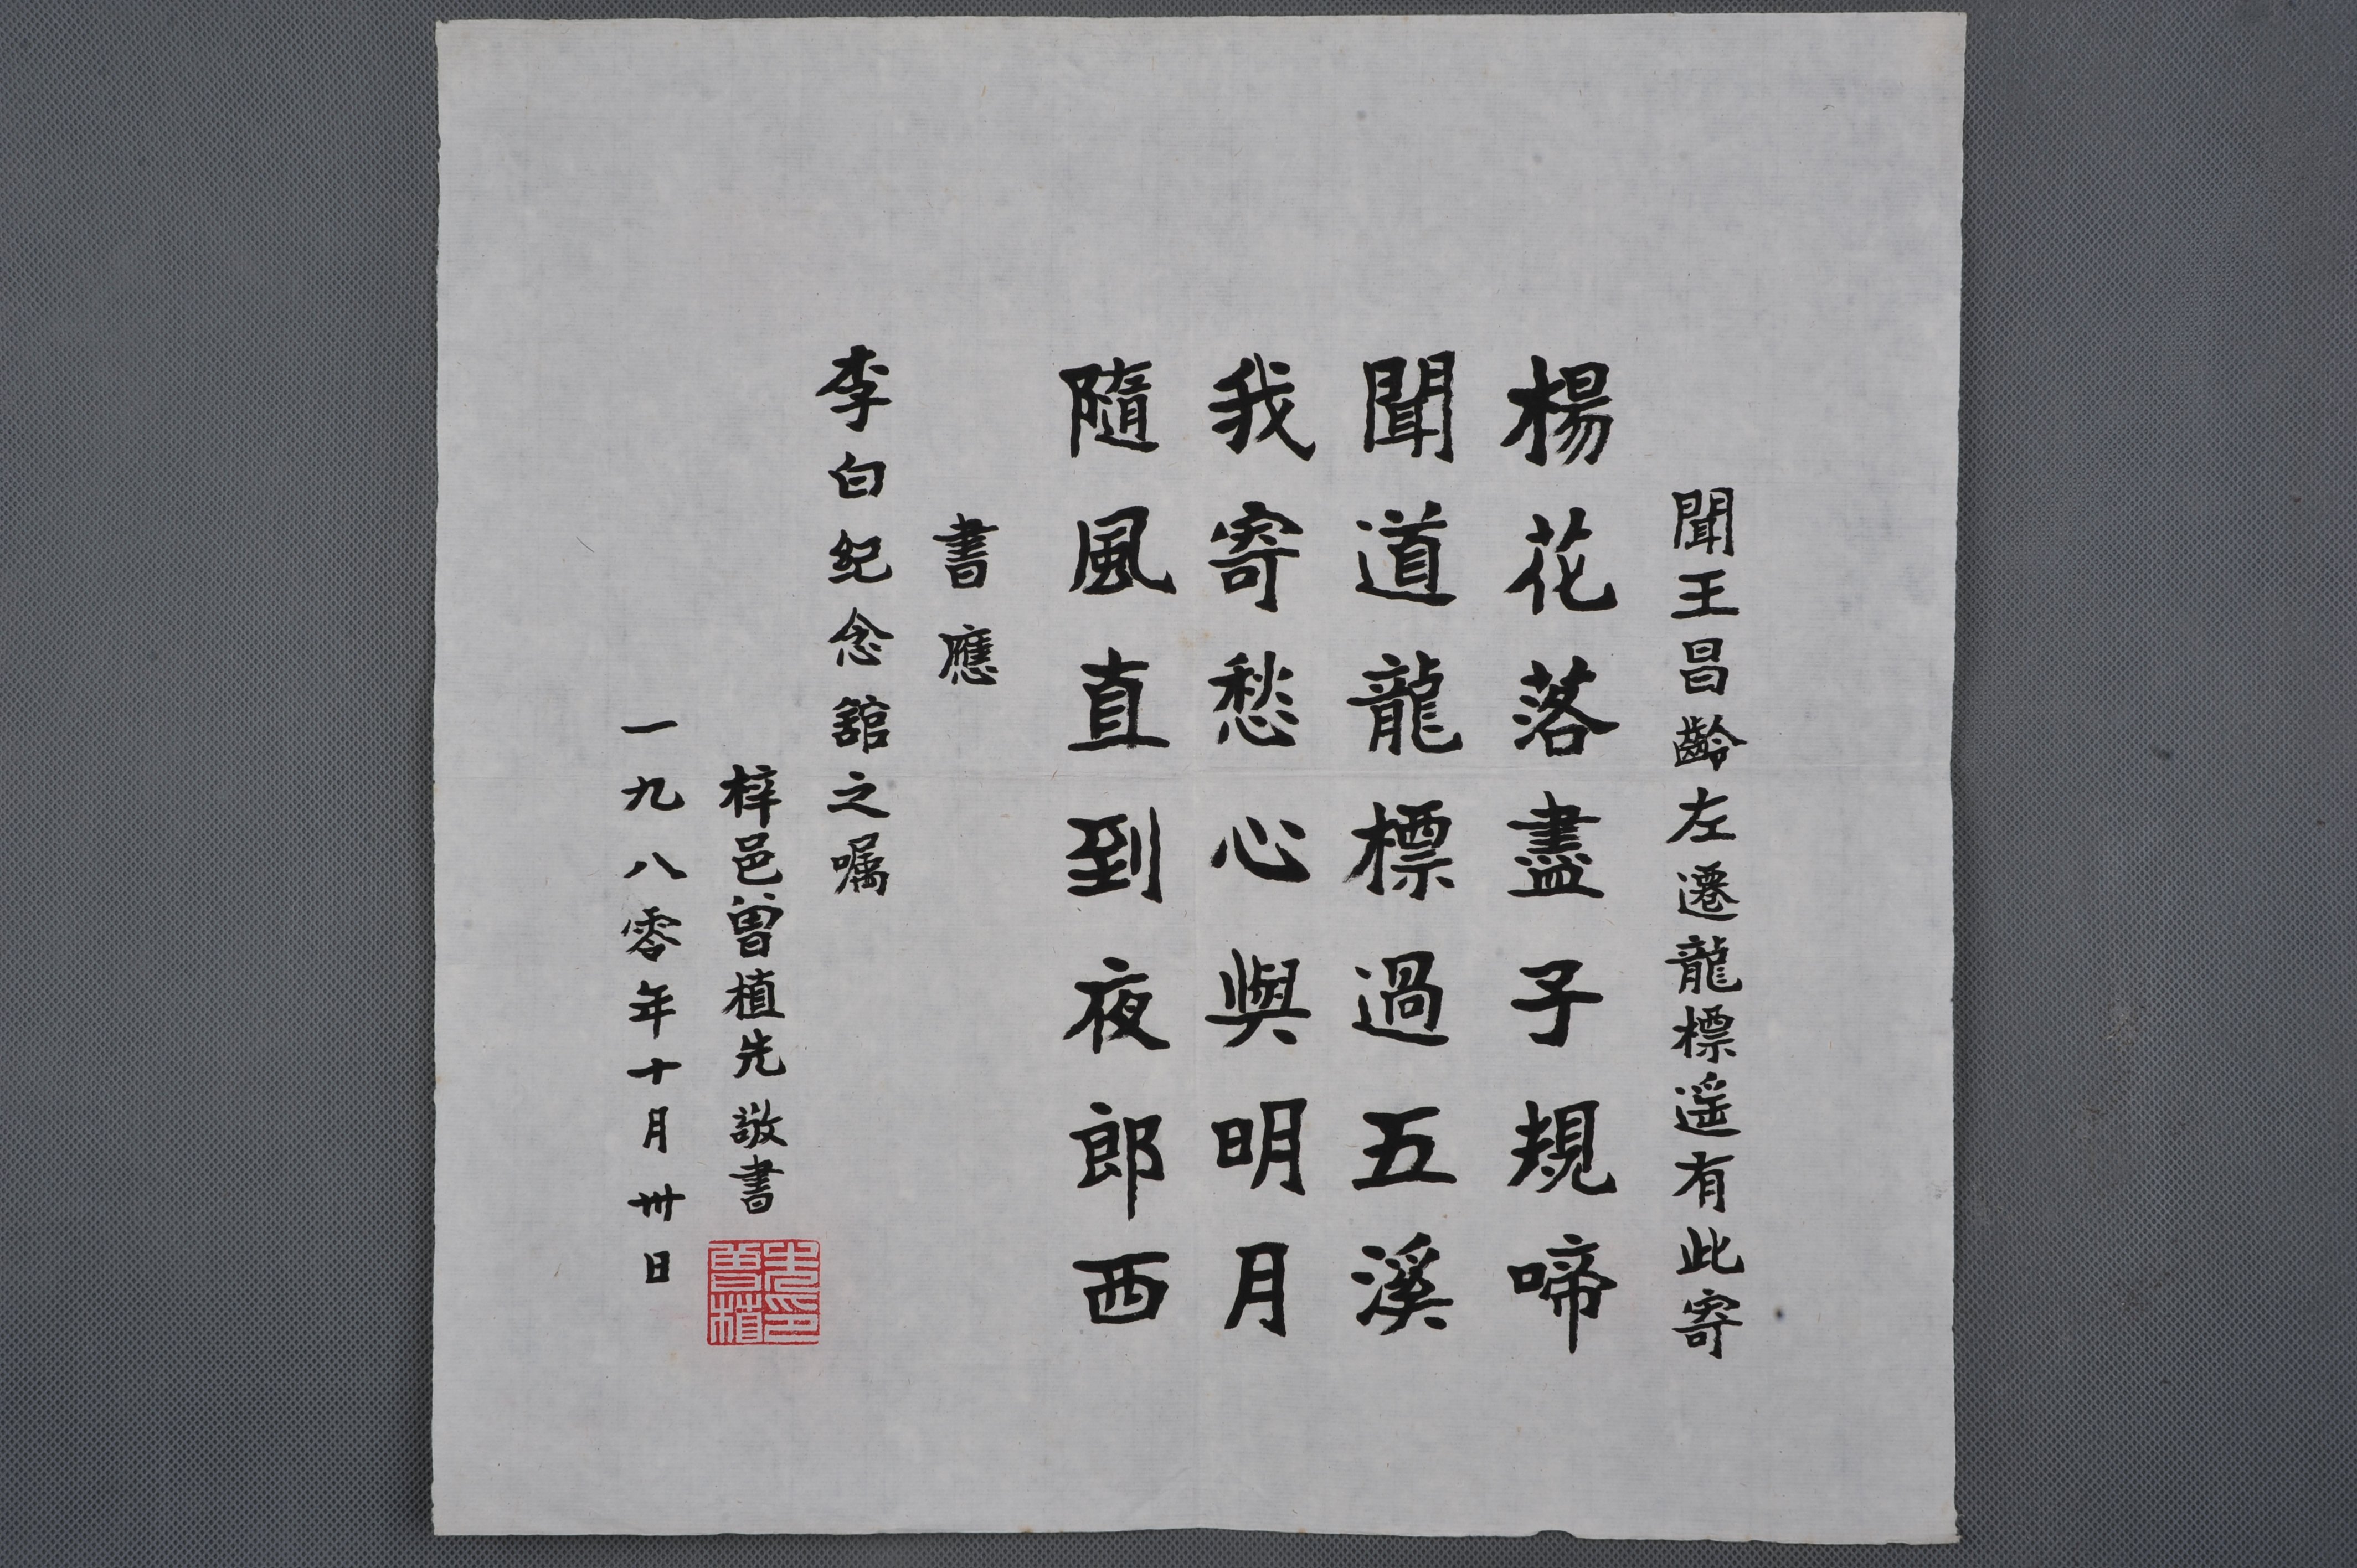 聞王昌齡左遷龍標遥有此寄
楊花落盡子規啼
聞道龍標過五溪
我寄愁心與明月
隨風直到夜郎西
書應
李白纪念舘之嘱
梓邑曾植先敬書
一九八零年十月卅日
曾植先印